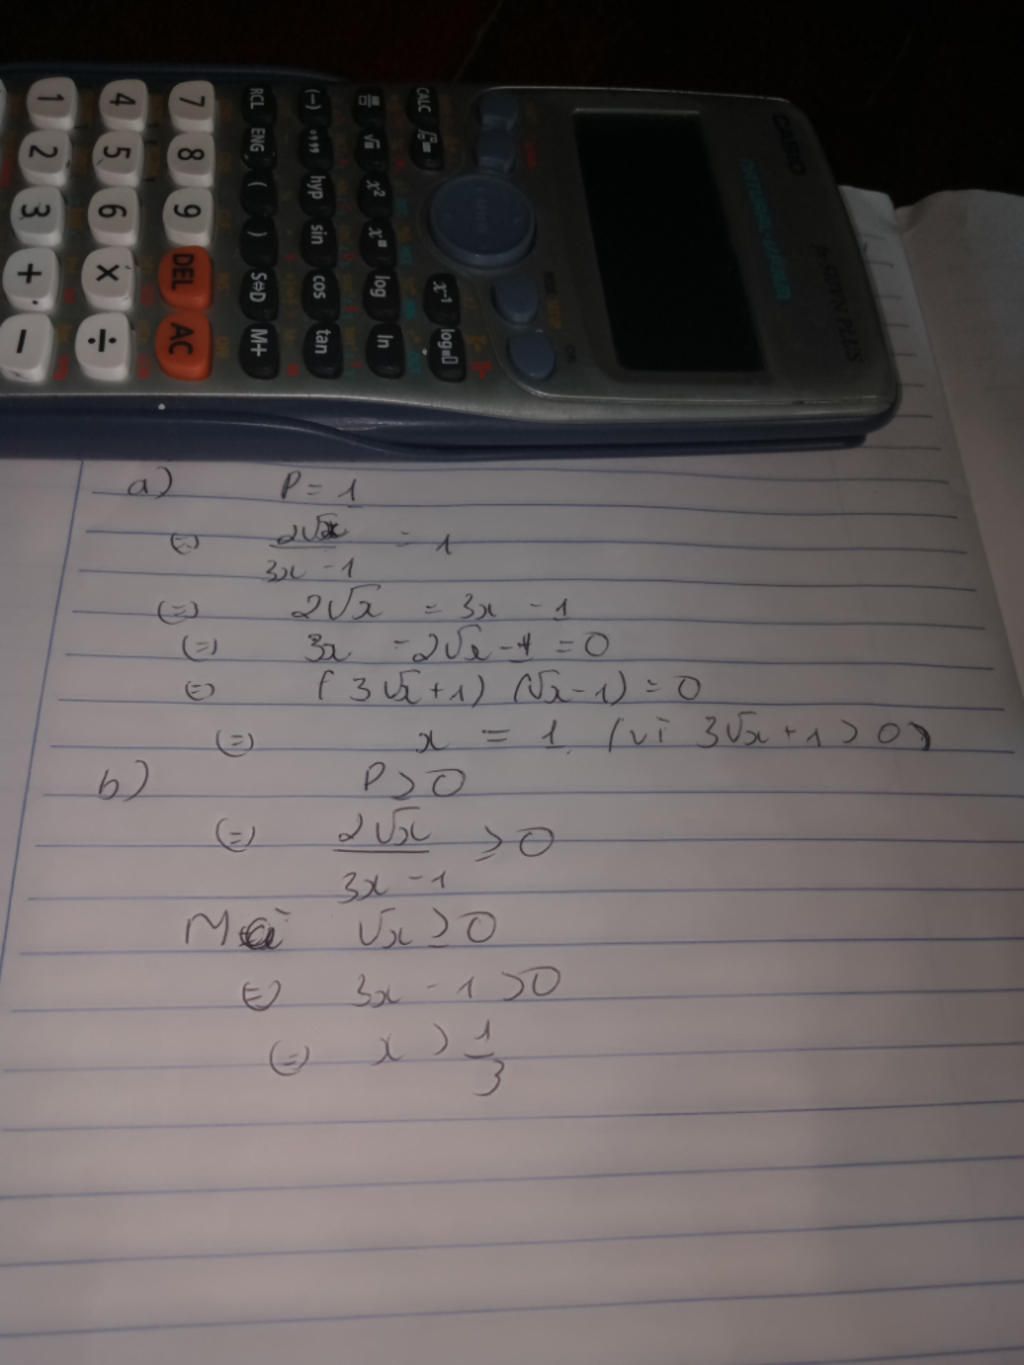 CASIO
NATURAL-V.P.A.M.
fx-570VN PLUS
CALC ∫
x⁻¹ log
√ x² xⁿ log ln
(-) °,,, hyp sin cos tan
RCL ENG ( ) S⇔D M+
7 8 9 DEL AC
4 5 6 × ÷
1 2 3 + −
a) P = 1
(=) 2√x / 3x - 1 = 1
(=) 2√x = 3x - 1
(=) 3x - 2√x - 1 = 0
(=) (3√x + 1) (√x - 1) = 0
(=) x = 1. (vì 3√x + 1 > 0)
b) P ≥ 0
(=) 2√x / 3x - 1 ≥ 0
Mà √x ≥ 0
(=) 3x - 1 > 0
(=) x > 1/3